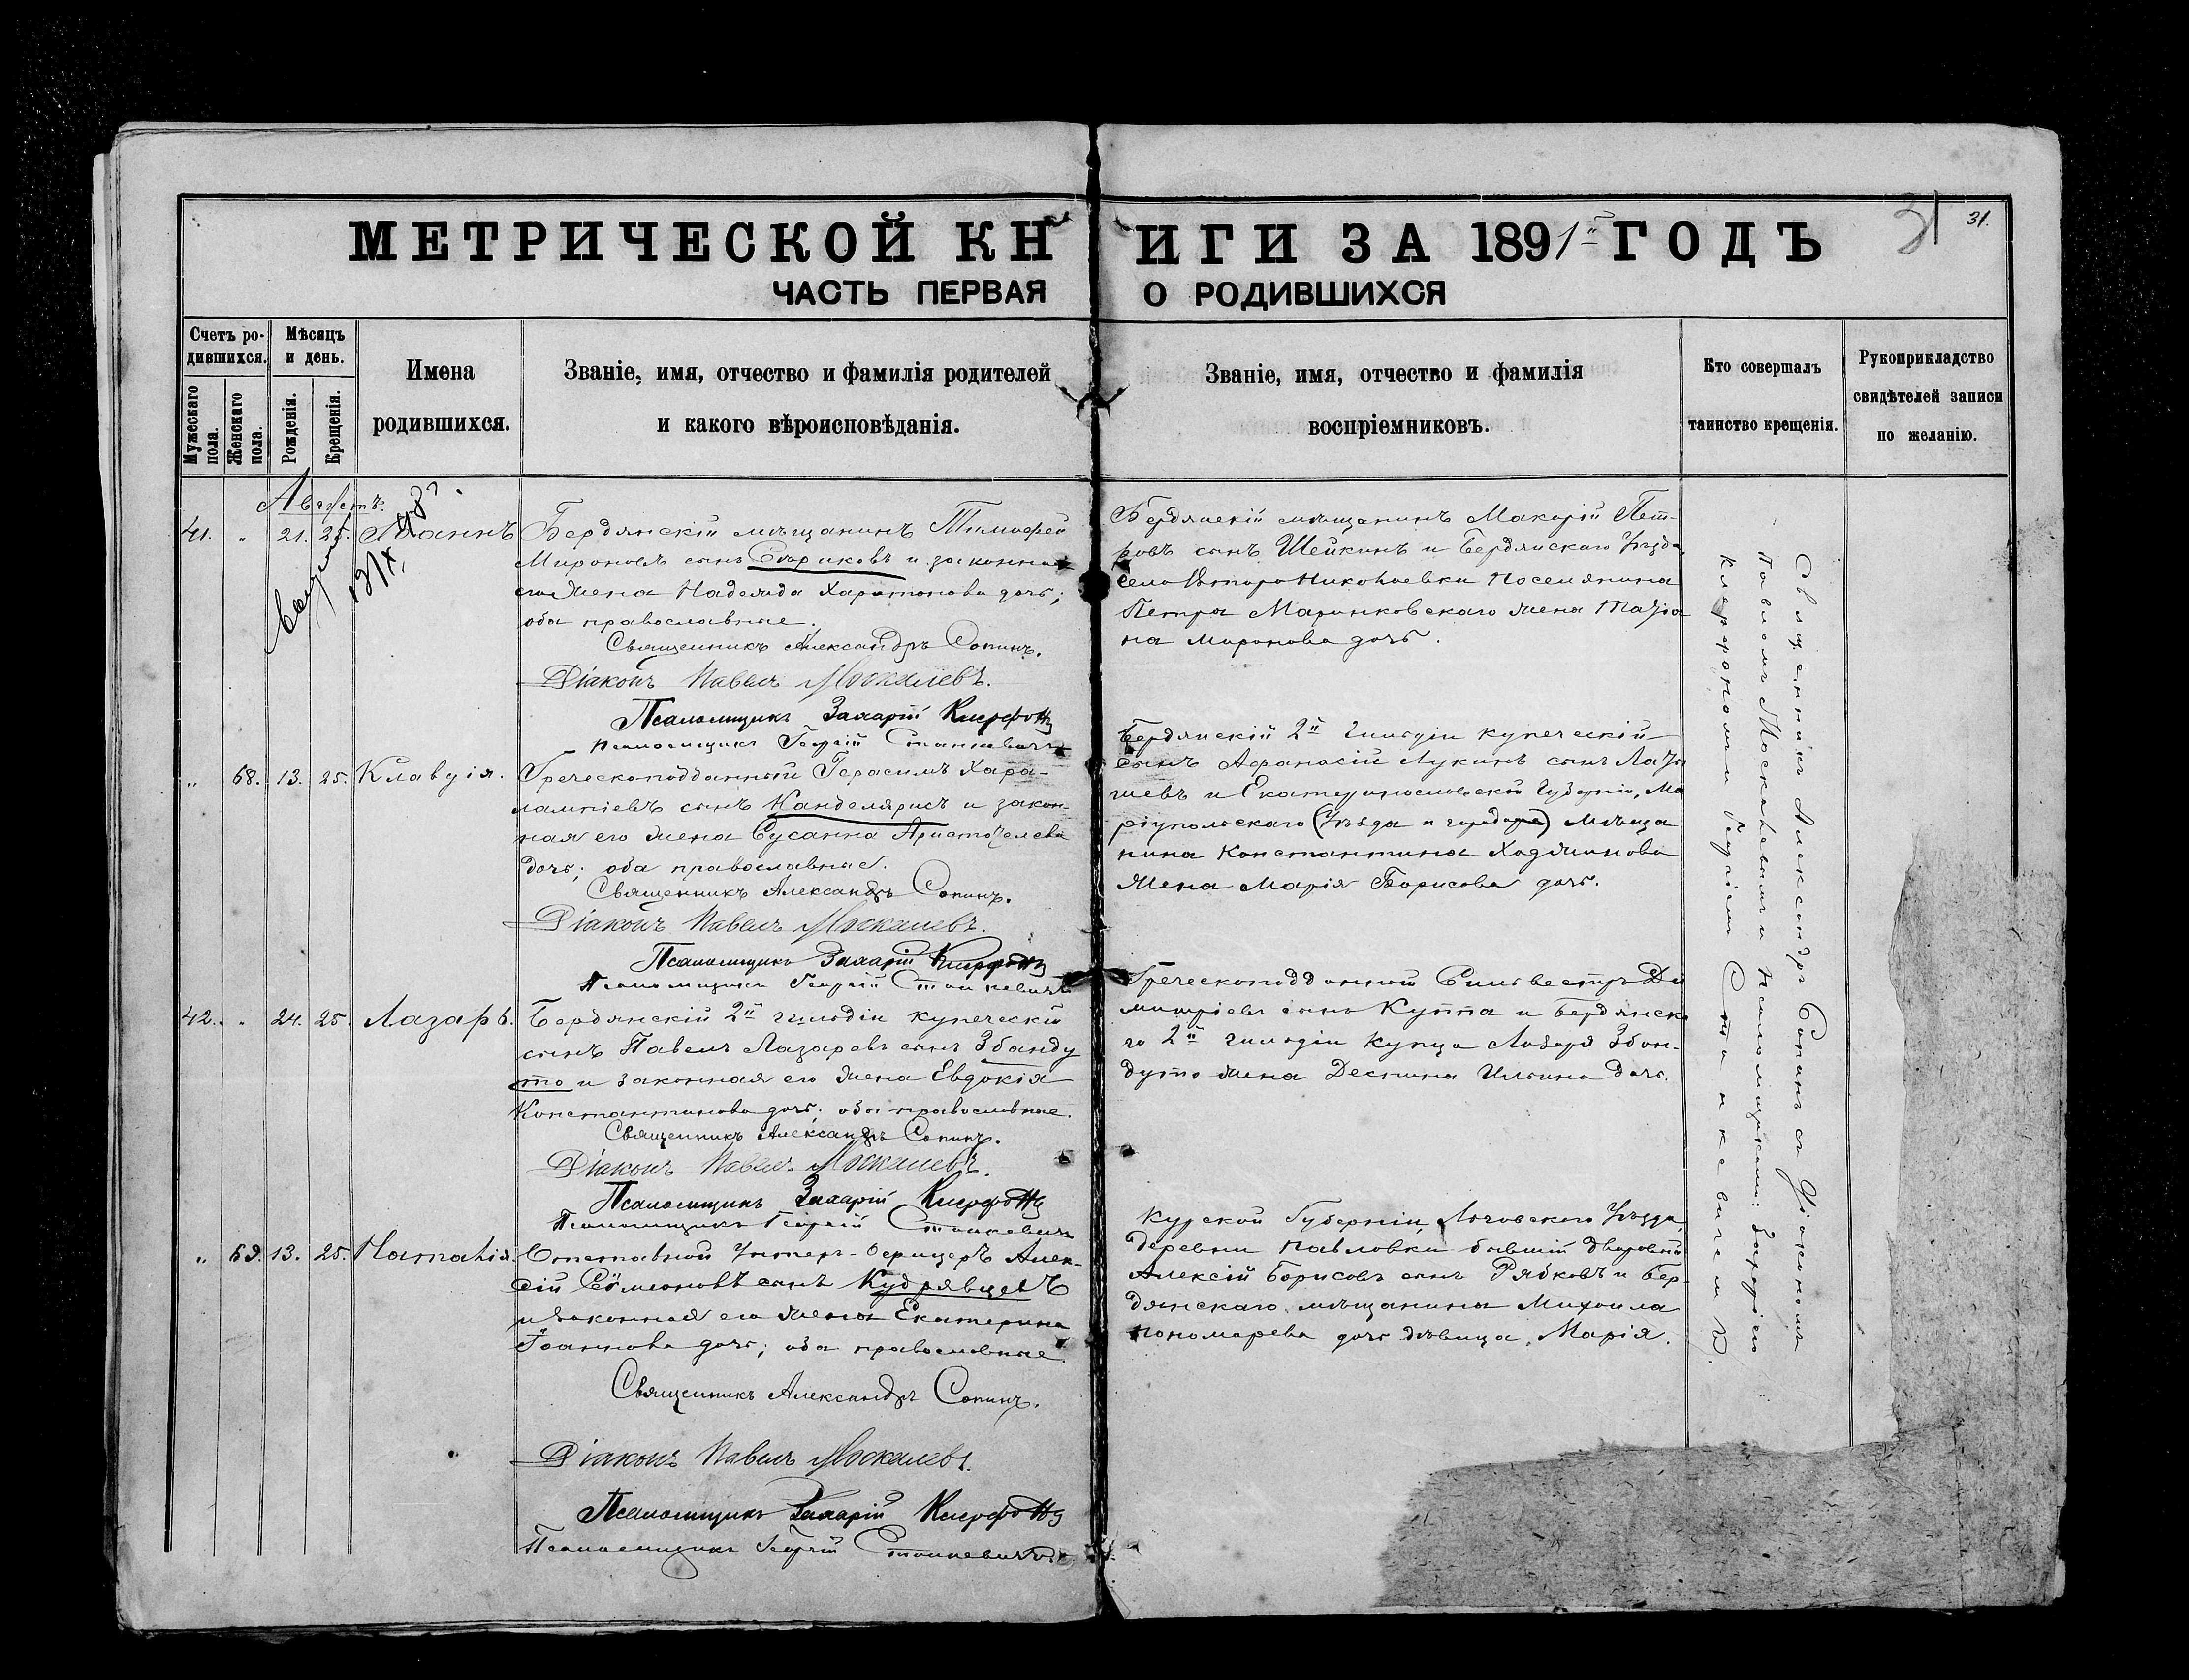 МЕТРИЧЕСКОЙ КНИГИ ЗА 1891й ГОДЪ
31 31.
ЧАСТЬ ПЕРВАЯ О РОДИВШИХСЯ
Счетъ ро-
дившихся.
Мужескаго пола.
Женскаго пола.
Мѣсяцъ
и день.
Рожденія.
Крещенія.
Имена
родившихся.
Званіе, имя, отчество и фамилія родителей
и какого вѣроисповѣданія.
Званіе, имя, отчество и фамилія
воспріемниковъ.
Кто совершалъ
таинство крещенія.
Рукоприкладство
свидѣтелей записи
по желанію.
Августъ.
41. " 21. 25. Іоаннъ
Бердянскій мѣщанинъ Тимофей
Мироновъ сынъ и законная
его жена Надежда Харитонова дочь;
оба православные.
Священникъ Александръ Сопинъ.
Діаконъ Павелъ Москалевъ.
Псаломщикъ Захарій
Псаломщикъ Георгій Станкевичъ
Бердянскій мѣщанинъ Макарій Пет-
ровъ сынъ Шейкинъ и Бердянскаго Уѣзда,
села Второ Николаевки поселянина
Петра Маринковскаго жена Татіа
на Миронова дочь.
" 68. 13. 25. Клавдія.
Греческоподданный Герасимъ Хара-
лампіевъ сынъ Канделярисъ и закон-
ная его жена Сусанна Аристотелева
дочь; оба православные.
Священникъ Александръ Сопинъ.
Діаконъ Павелъ Москалевъ.
Псаломщикъ Захарій
Псаломщикъ Георгій Станкевичъ
Бердянскій 2й гильдіи купеческій
сынъ Афанасій Лукинъ сынъ
и Екатеринославской Губерніи, Ма
ріупольскаго (Уѣзда и города) мѣща
нина Константина Хаджинова
жена Марія Борисова дочь.
42. " 24. 25. Лазарь.
Бердянскій 2й гильдіи купеческій
сынъ Павелъ Лазаревъ сынъ Збанду
то и законная его жена Евдокія
Константинова дочь; оба православные.
Священникъ Александръ Сопинъ.
Діаконъ Павелъ Москалевъ.
Псаломщикъ Захарій
Псаломщикъ Георгій Станкевичъ
Греческоподданный Сильвестръ Ди
митріевъ сынъ Куппа и Бердянска
го 2й гильдіи купца Лазаря Збан-
дуто жена Деспина Ильина дочь.
" 69. 13. 25. Наталія.
Отставной Унтеръ-Офицеръ Алек-
сій Сѵмеоновъ сынъ Кудрявцевъ
и законная его жена Екатерина
Іоаннова дочь; оба православные.
Священникъ Александръ Сопинъ.
Діаконъ Павелъ Москалевъ.
Псаломщикъ Захарій
Псаломщикъ Георгій Станкевичъ
Курской Губерніи, Льговскаго Уѣзда,
деревни Павловки бывшій дворовый
Алексій Борисовъ сынъ Рябковъ и Бер-
дянскаго мѣщанина Михаила
Пономарева дочь дѣвица Марія.
Священникъ Александръ Сопинъ съ Діакономъ
Павломъ Москалевымъ и псаломщиками: Захаріемъ
и Георгіемъ Станкевичемъ.